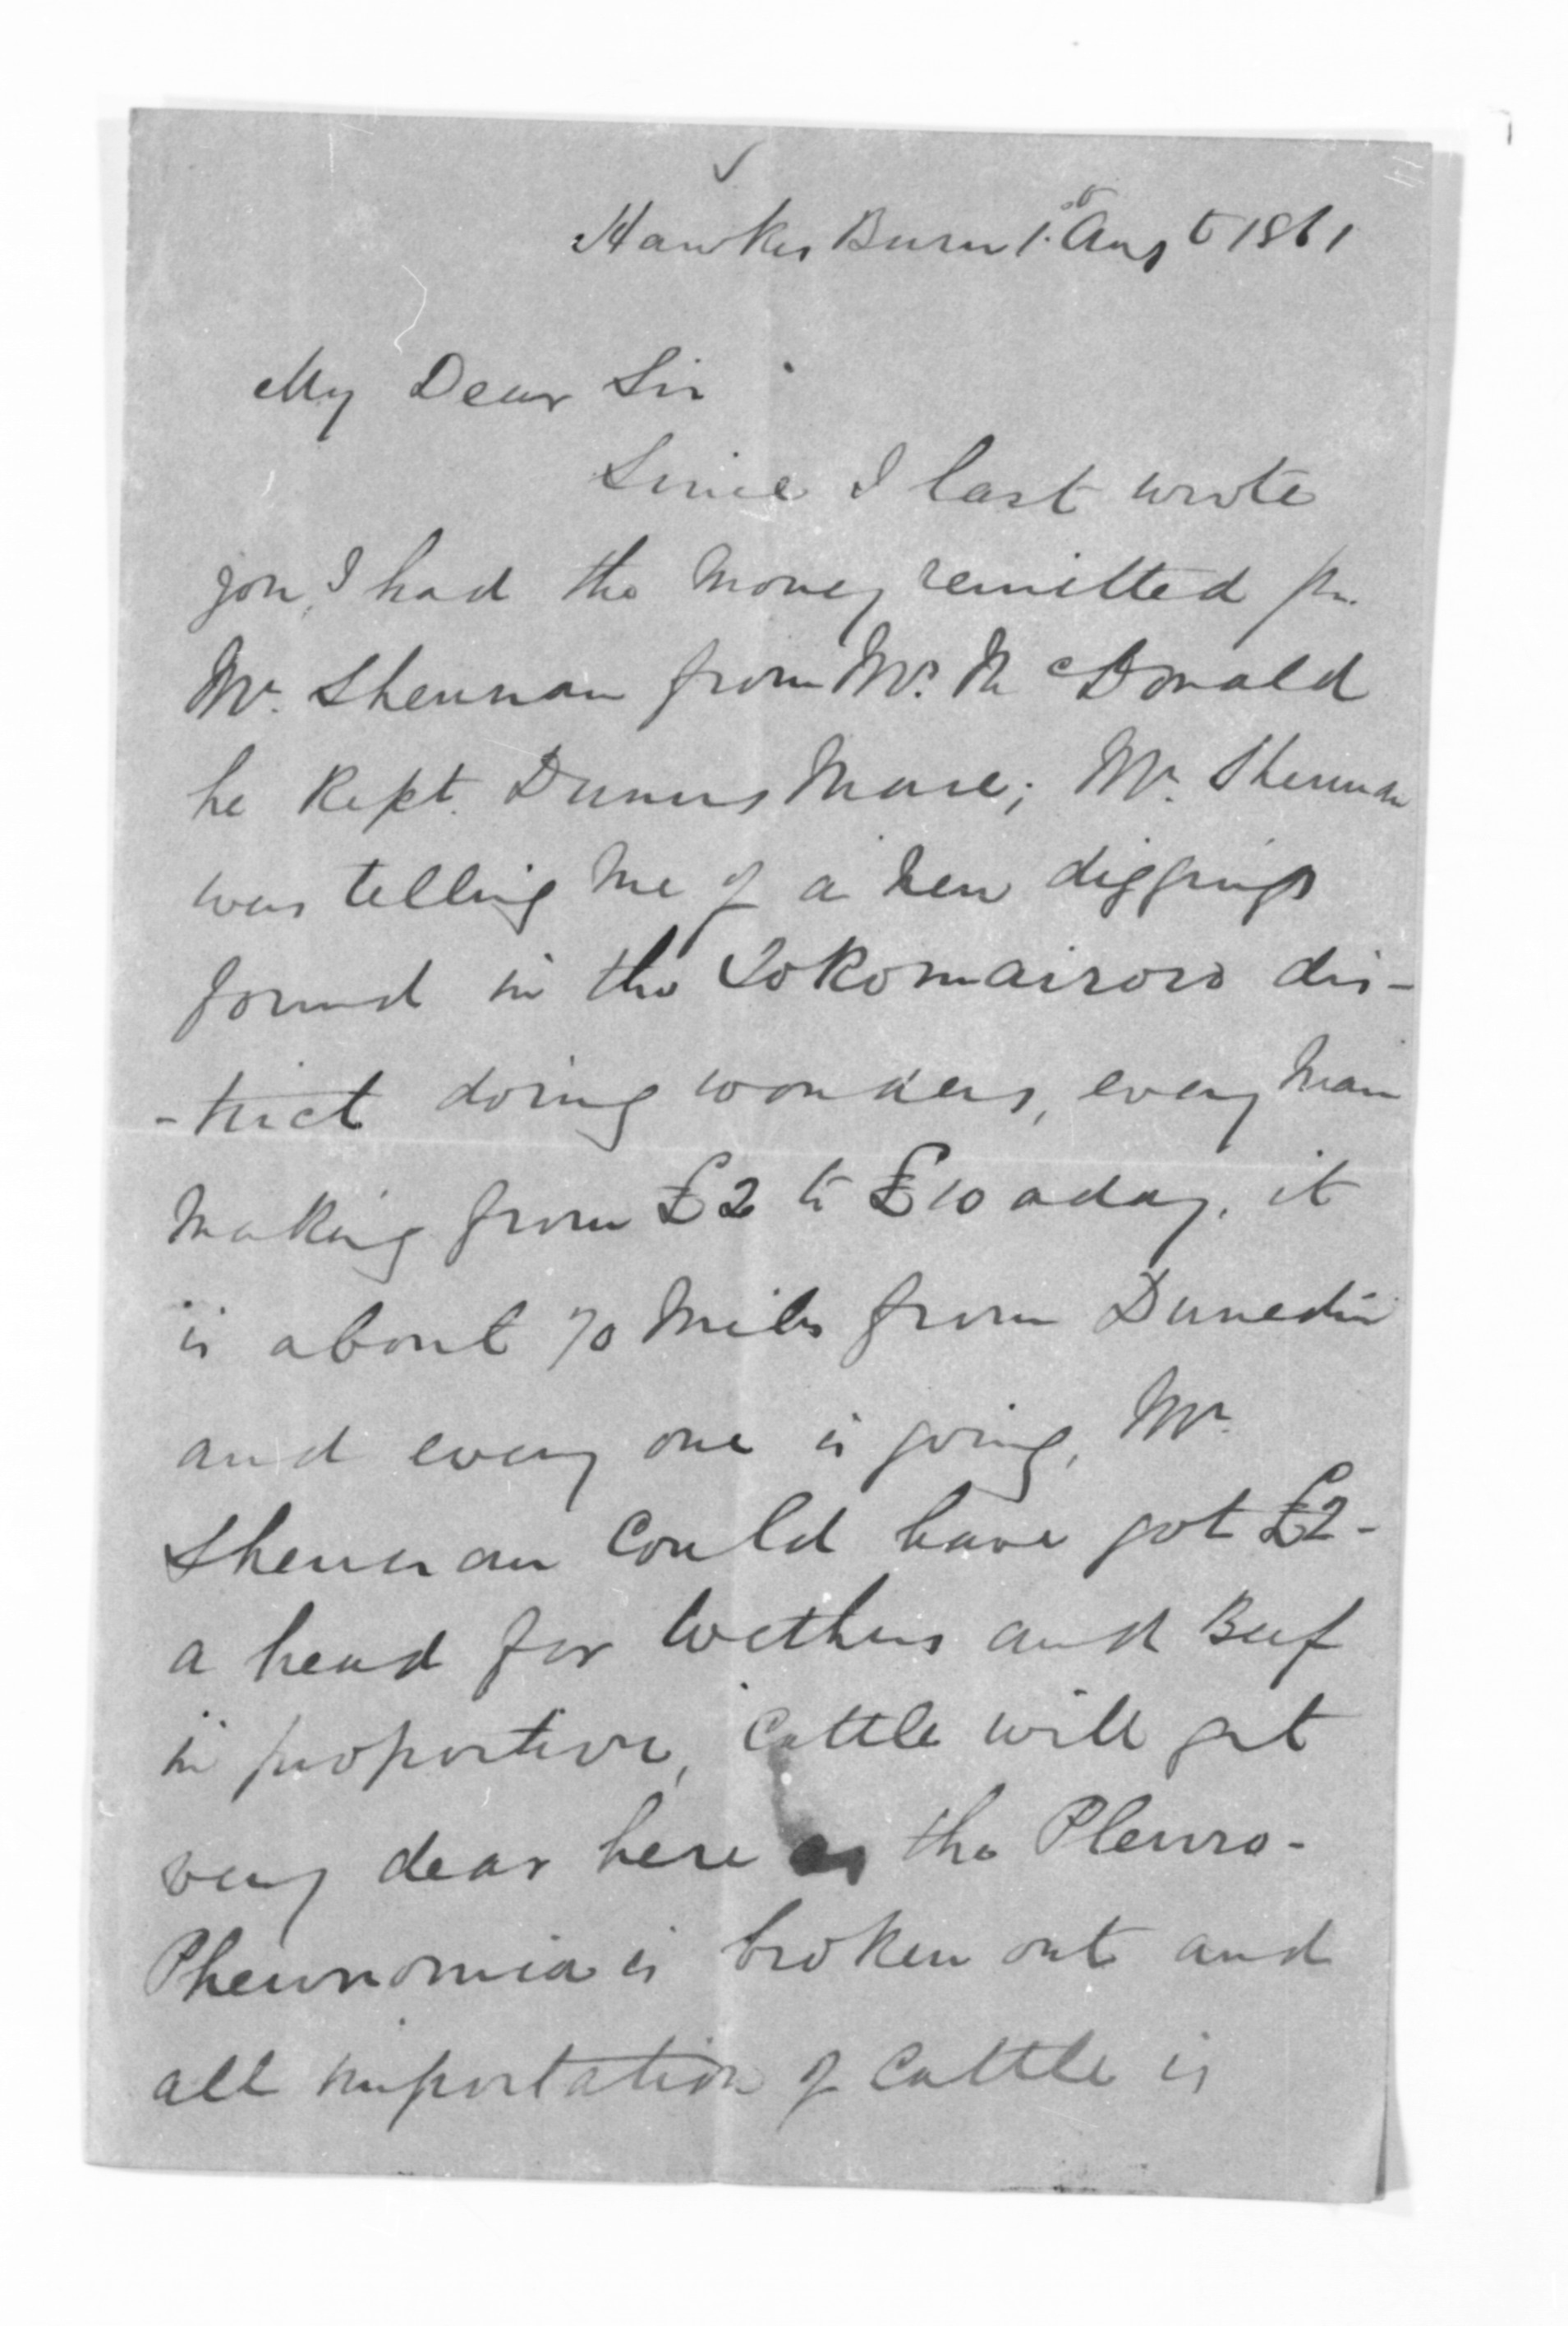 Hawkes Burn 1st Augt 1861
My Dear Sir
Since I last wrote
you, I had the money remitted pr.
Mr. Shennan from Mr. McDonald
he kept Dunns Mare; Mr. Shennan
was telling me of a new diggings
found in the Tokomairoro dis-
-trict doing wonders, every man
making from £2 to £10 a day, it
is about 70 miles from Dunedin
and every one is going, Mr.
Shennan could have got £2-
a head for Wethers and Beef
in proportion, Cattle will get
very dear here as the Pleuro-
Pheumonia is broken out and
all importation of Cattle is